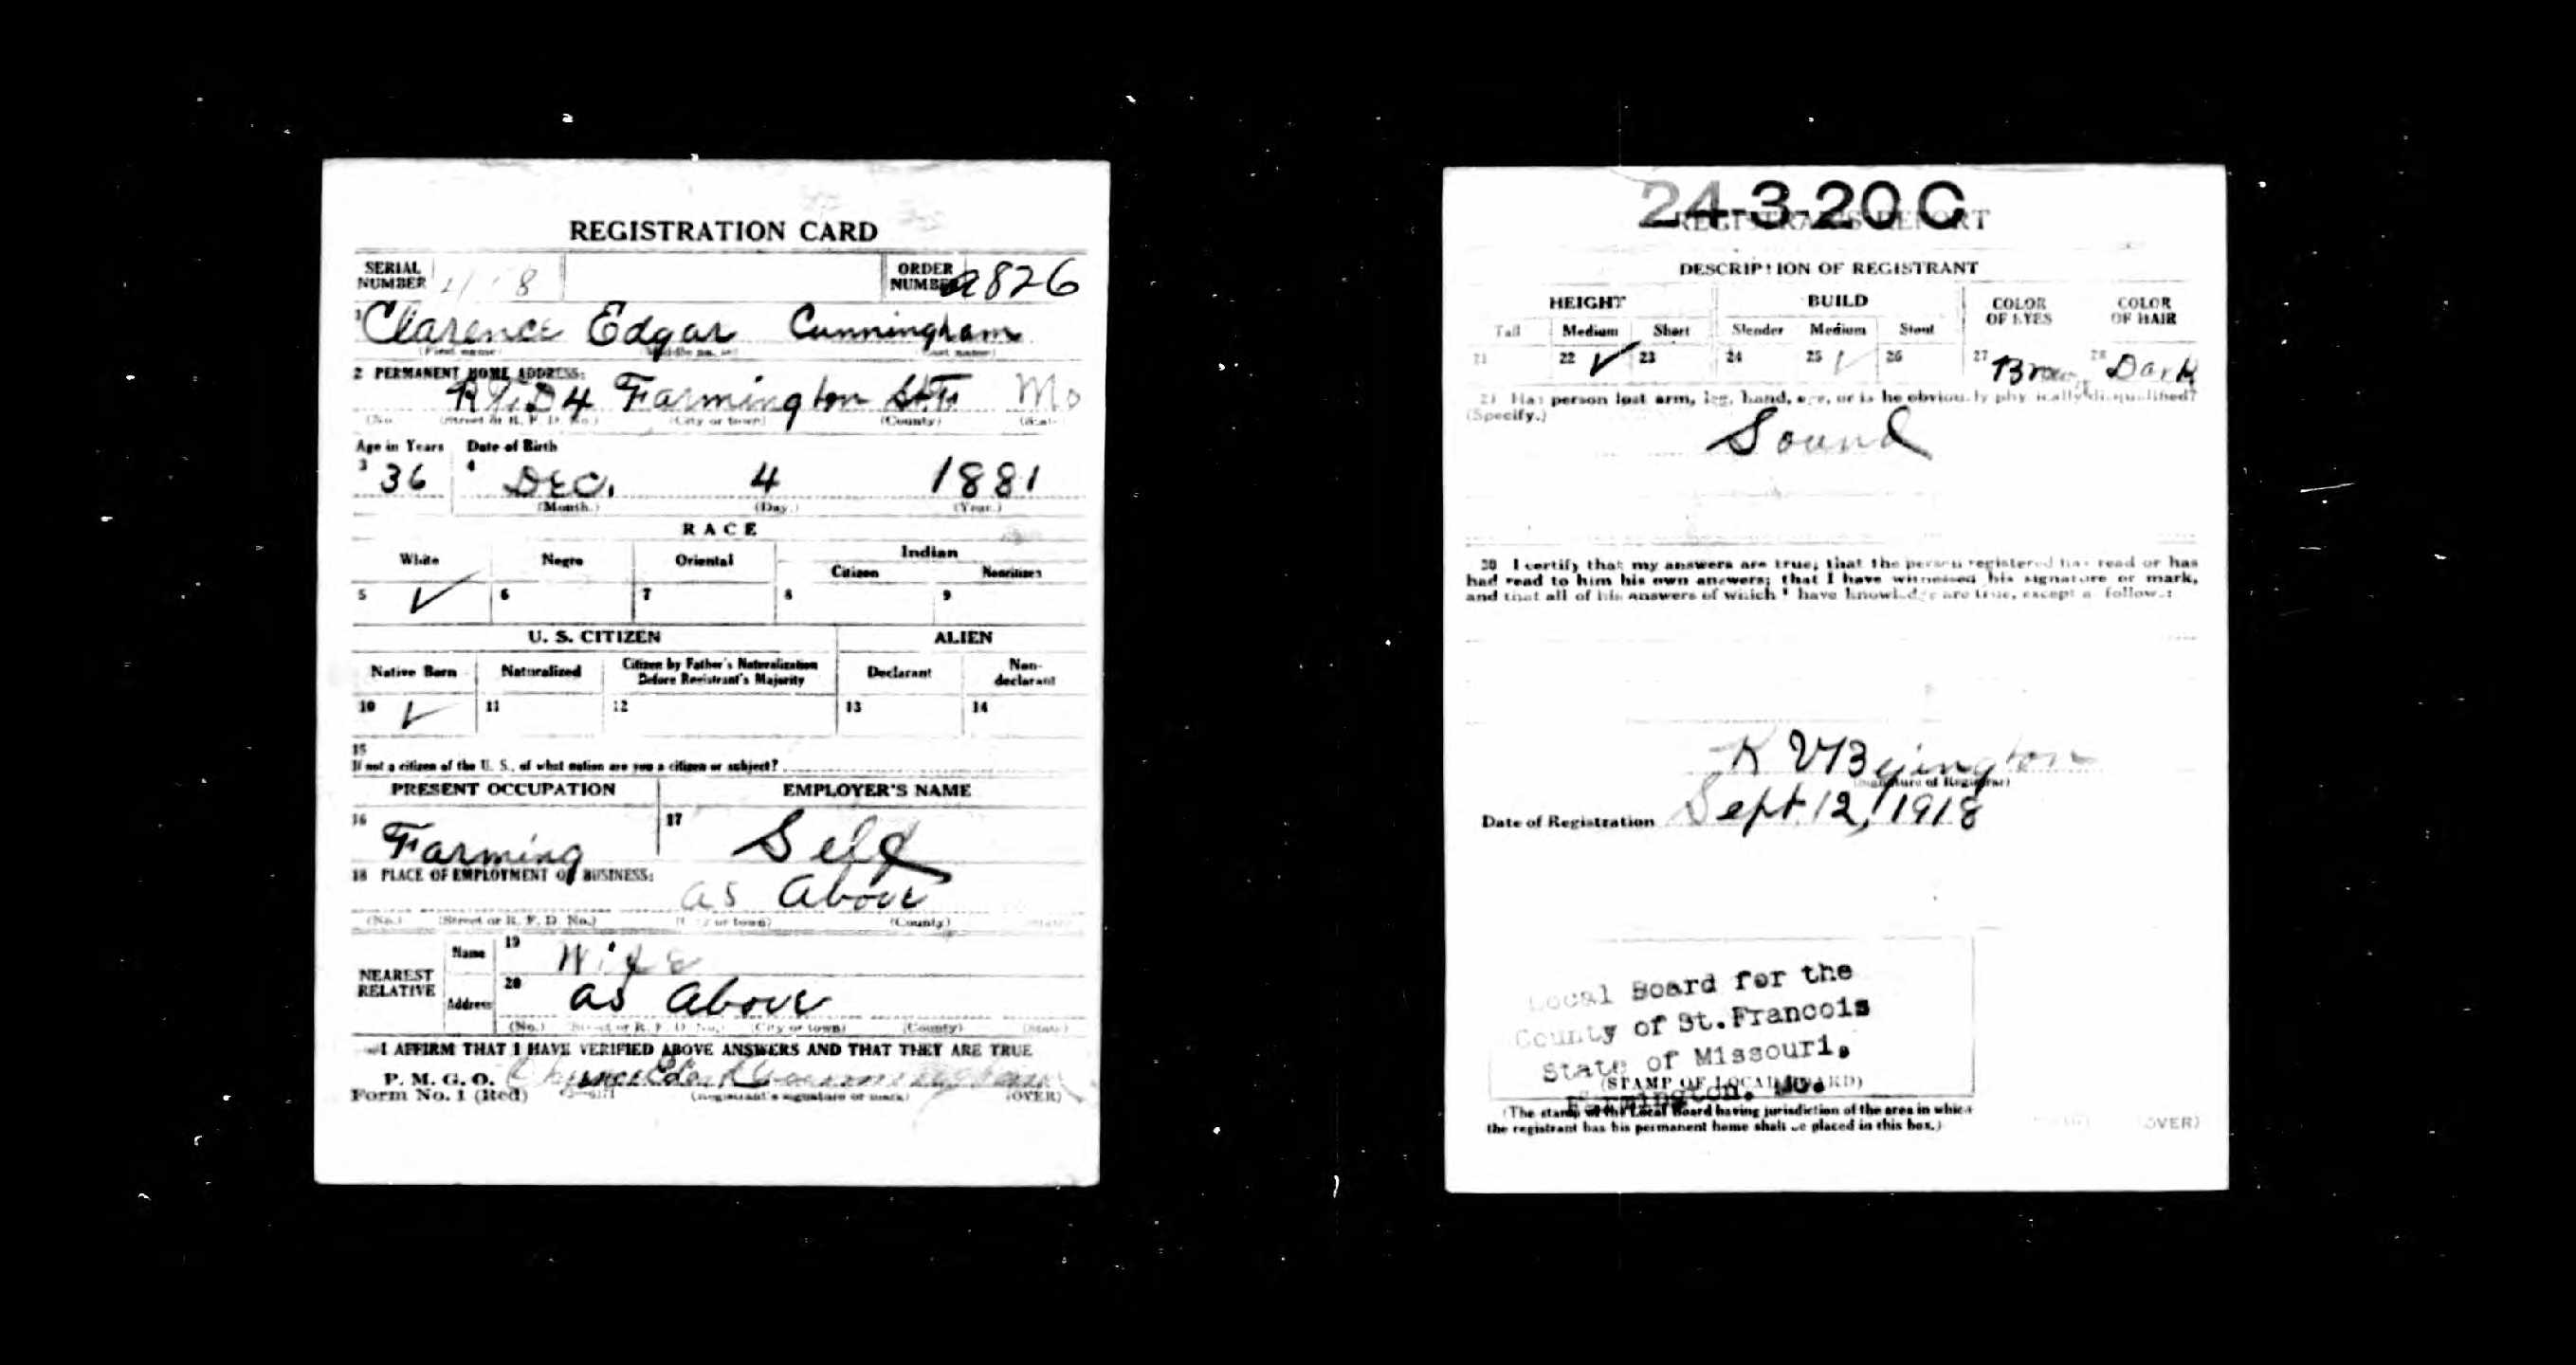 REGISTRATION CARD
SERIAL NUMBER
ORDER NUMBER 2826
1 Clarence Edgar Cunningham
(First name) (Middle name) (Last name)
2 PERMANENT HOME ADDRESS:
R.F.D 4 Farmington St.F. Mo
(No.) (Street or R. F. D. No.) (City or town) (County) (State)
Age in Years Date of Birth
3 36 4 Dec. 4 1881
(Month.) (Day.) (Year.)
RACE
White Negro Oriental Indian
Citizen Noncitizen
5 ✓ 6 7 8 9
U. S. CITIZEN ALIEN
Native Born Naturalized Citizen by Father's Naturalization Before Registrant's Majority Declarant Non-declarant
10 ✓ 11 12 13 14
15
If not a citizen of the U. S., of what nation are you a citizen or subject?
PRESENT OCCUPATION EMPLOYER'S NAME
16 Farming 17 Self
18 PLACE OF EMPLOYMENT OR BUSINESS:
as Above
(No.) (Street or R. F. D. No.) (City or town) (County) (State)
NEAREST RELATIVE
Name 19 Wife
Address 20 as Above
(No.) (Street or R. F. D. No.) (City or town) (County) (State)
I AFFIRM THAT I HAVE VERIFIED ABOVE ANSWERS AND THAT THEY ARE TRUE
P. M. G. O.
Form No. 1 (Red) Clarence Edgar Cunningham
(Registrant's signature or mark) (OVER)
24-3-20 C
REGISTRAR'S REPORT
DESCRIPTION OF REGISTRANT
HEIGHT BUILD COLOR OF EYES COLOR OF HAIR
Tall Medium Short Slender Medium Stout
21 22 ✓ 23 24 25 ✓ 26 27 Brown 28 Dark
29 Has person lost arm, leg, hand, eye, or is he obviously physically disqualified?
(Specify.)
Sound
30 I certify that my answers are true; that the person registered has read or has
had read to him his own answers; that I have witnessed his signature or mark,
and that all of his answers of which I have knowledge are true, except as follows:
Byington
(Signature of Registrar)
Date of Registration Sept. 12, 1918
Local Board for the
County of St. Francois
State of Missouri,
Farmington, Mo.
(STAMP OF LOCAL BOARD)
(The stamp of the Local Board having jurisdiction of the area in which
the registrant has his permanent home shall be placed in this box.)
(OVER)